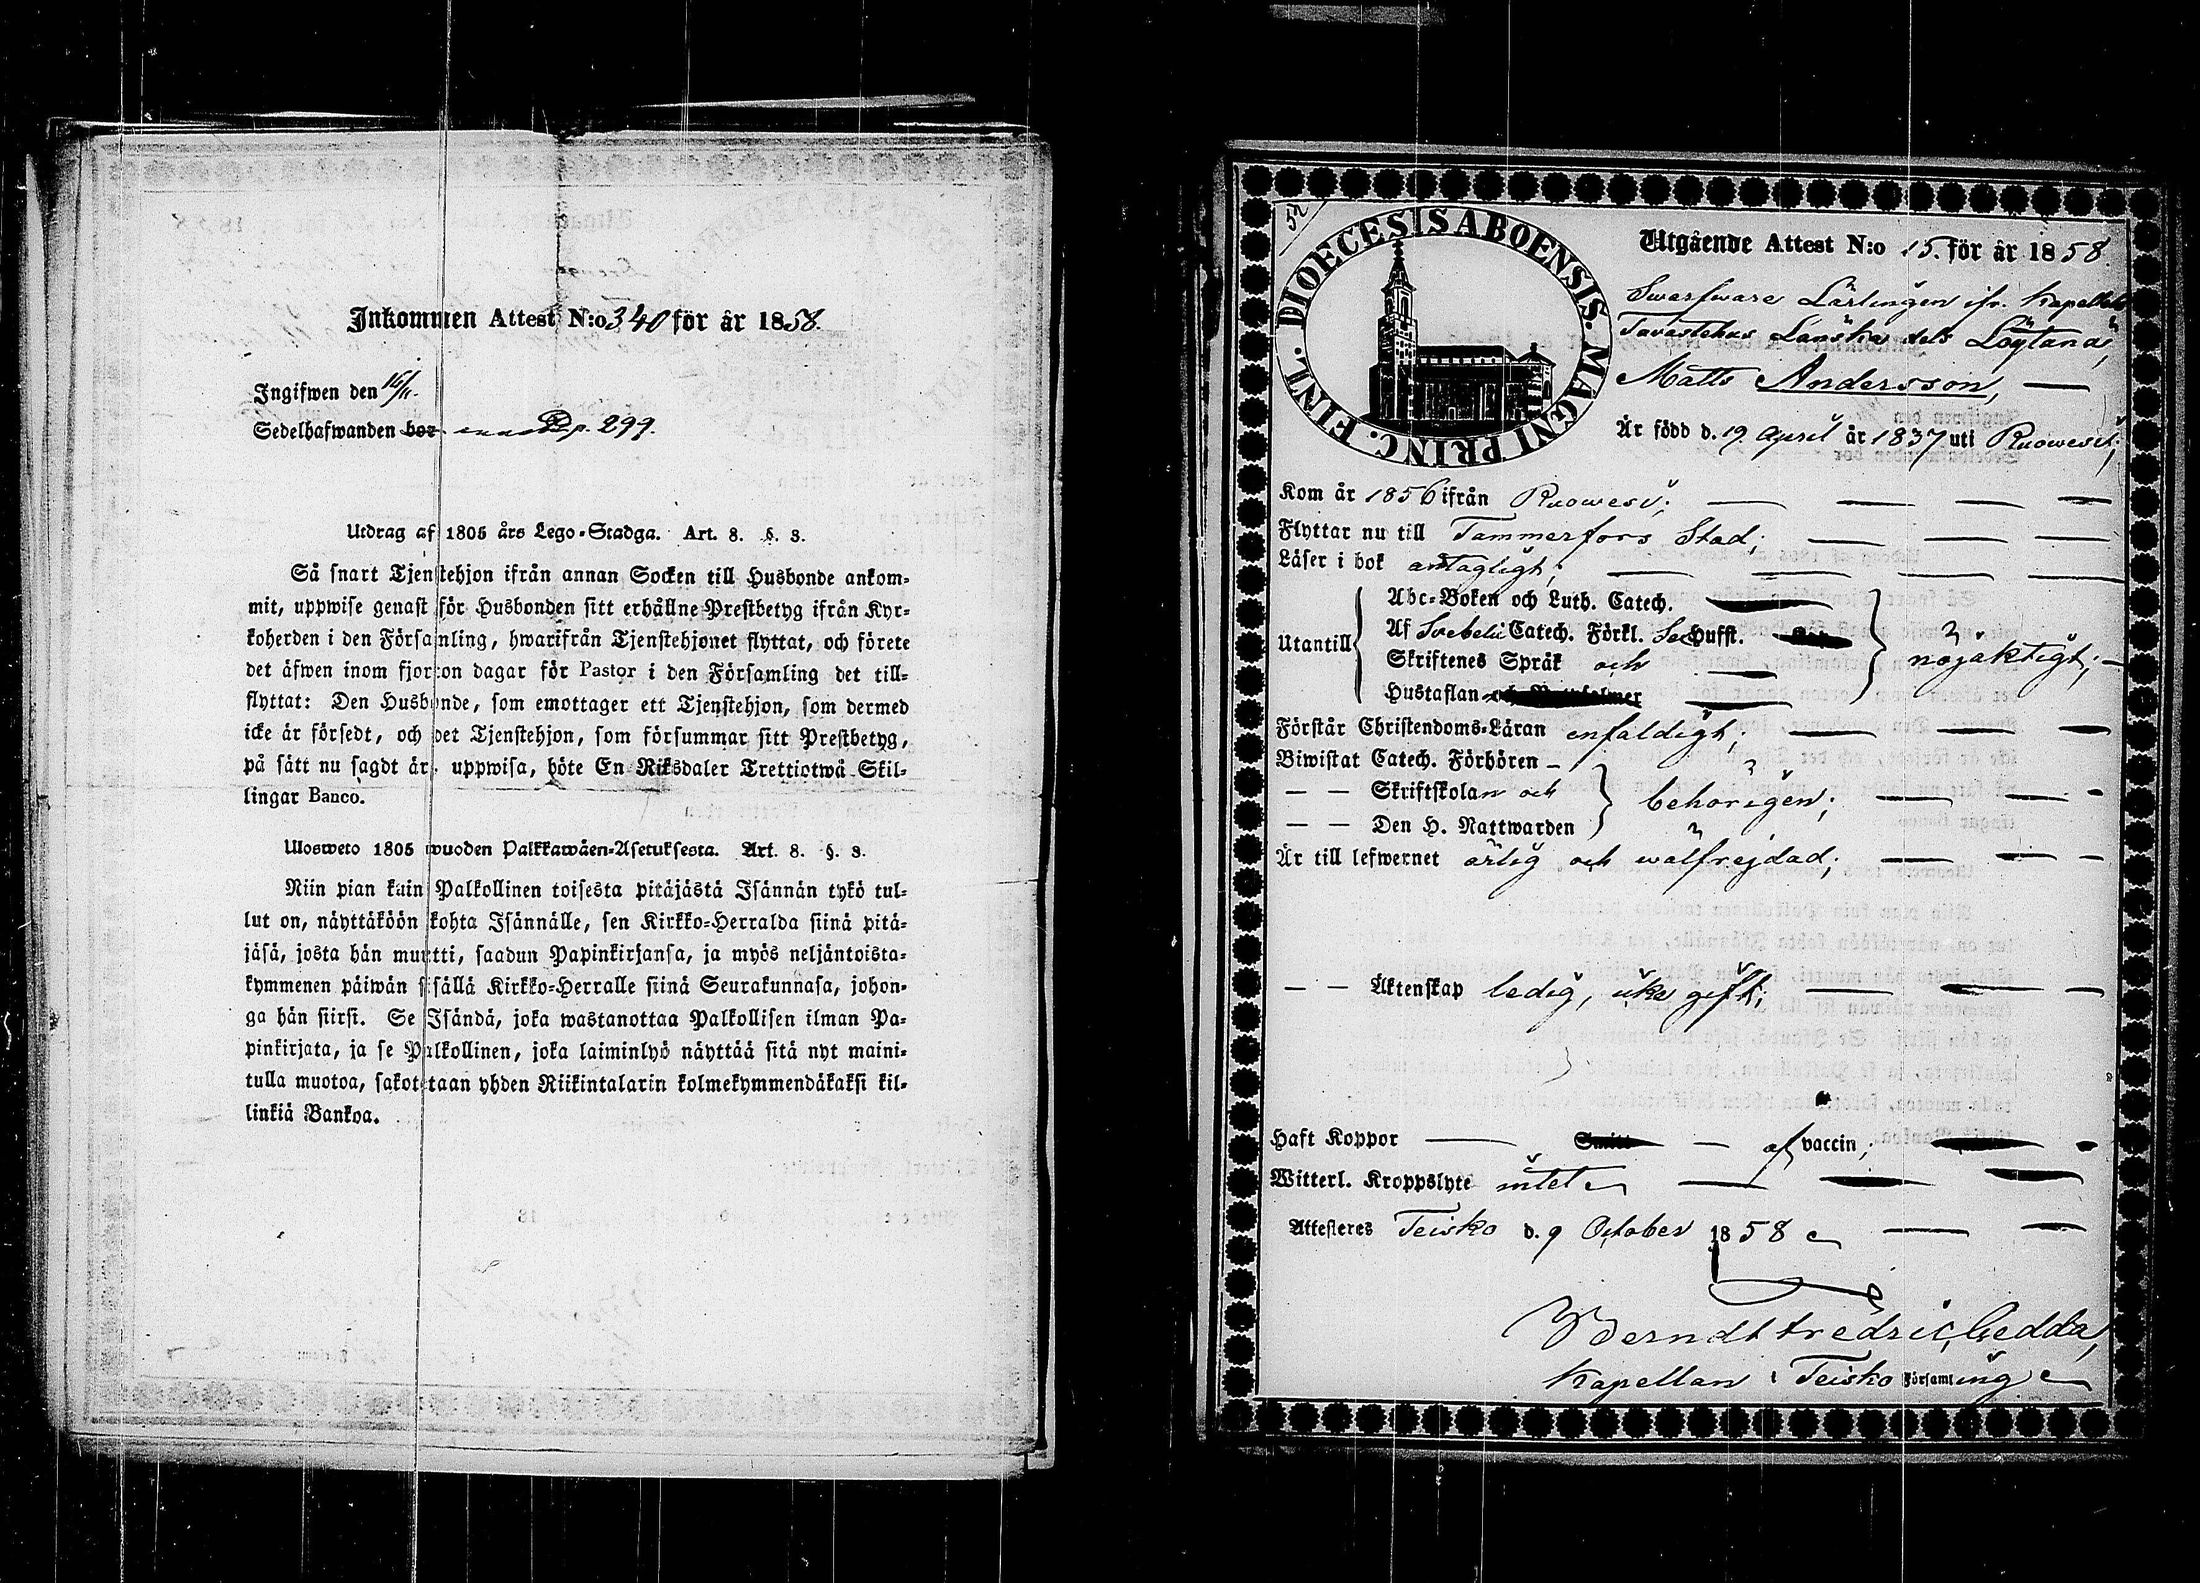 Inkommen Attest N:o 340 för år 1858.
Ingifwen den 16/11.
Sedelhafwanden bor p. 299.
Utdrag af 1805 års Lego-Stadga. Art. 8. §. 3.
Så snart Tjenstehjon ifrån annan Socken till Husbonde ankom-
mit, uppwise genast för Husbonden sitt erhållne Prestbetyg ifrån Kyr-
koherden i den Församling, hwarifrån Tjenstehjonet flyttat, och förete
det äfwen inom fjorton dagar för Pastor i den Församling det till-
flyttat: Den Husbonde, som emottager ett Tjenstehjon, som dermed
icke är försedt, och det Tjenstehjon, som försummar sitt Prestbetyg,
på sätt nu sagdt är, uppwisa, böte En Riksdaler Trettiotwå Skil-
lingar Banco.
Ulosweto 1805 wuoden Palkkawäen-Asetuksesta. Art. 8. §. 3.
Niin pian kuin Palkollinen toisesta pitäjästä Isännän tykö tul-
lut on, näyttäköön kohta Isännälle, sen Kirkko-Herralda siinä pitä-
jäsä, josta hän muutti, saadun Papinkirjansa, ja myös neljäntoista-
kymmenen päiwän sisällä Kirkko-Herralle siinä Seurakunnasa, johon-
ga hän siirsi. Se Isändä, joka wastanottaa Palkollisen ilman Pa-
pinkirjata, ja se Palkollinen, joka laiminlyö näyttää sitä nyt maini-
tulla muotoa, sakotetaan yhden Riikintalarin kolmekymmendäkaksi kil-
linkiä Bankoa.
52
DIOECESIS ABOENSIS. MAGNI PRINC. FINL.
Utgående Attest N:o 15. för år 1858.
Swarfware Lärlingen ifr. Kapellets
Tavastehus Länska dels Löytänä,
Matts Andersson,
Är född d. 19 April år 1837 uti Ruowesi;
Kom år 1856 ifrån Ruowesi;
Flyttar nu till Tammerfors Stad;
Läser i bok antagligt;
Utantill
Abc-Boken och Luth. Catech.
Af Svebelii Catech. Förkl. Hufst.
Skriftenes Språk och
Hustaflan
nöjaktigt;
Förstår Christendoms-Läran enfaldigt;
Biwistat Catech. Förhören
— — Skriftskolan och
— — Den H. Nattwarden
behörigen;
Är till lefwernet ärlig och wälfrejdad;
— — Äktenskap ledig, icke gift;
Haft Koppor — Smitt — af vaccin;
Witterl. Kroppslyte intet
Attesteres Teisko d. 9 October 1858
Berndt Fredric Gedda,
Kapellan i Teisko Församling